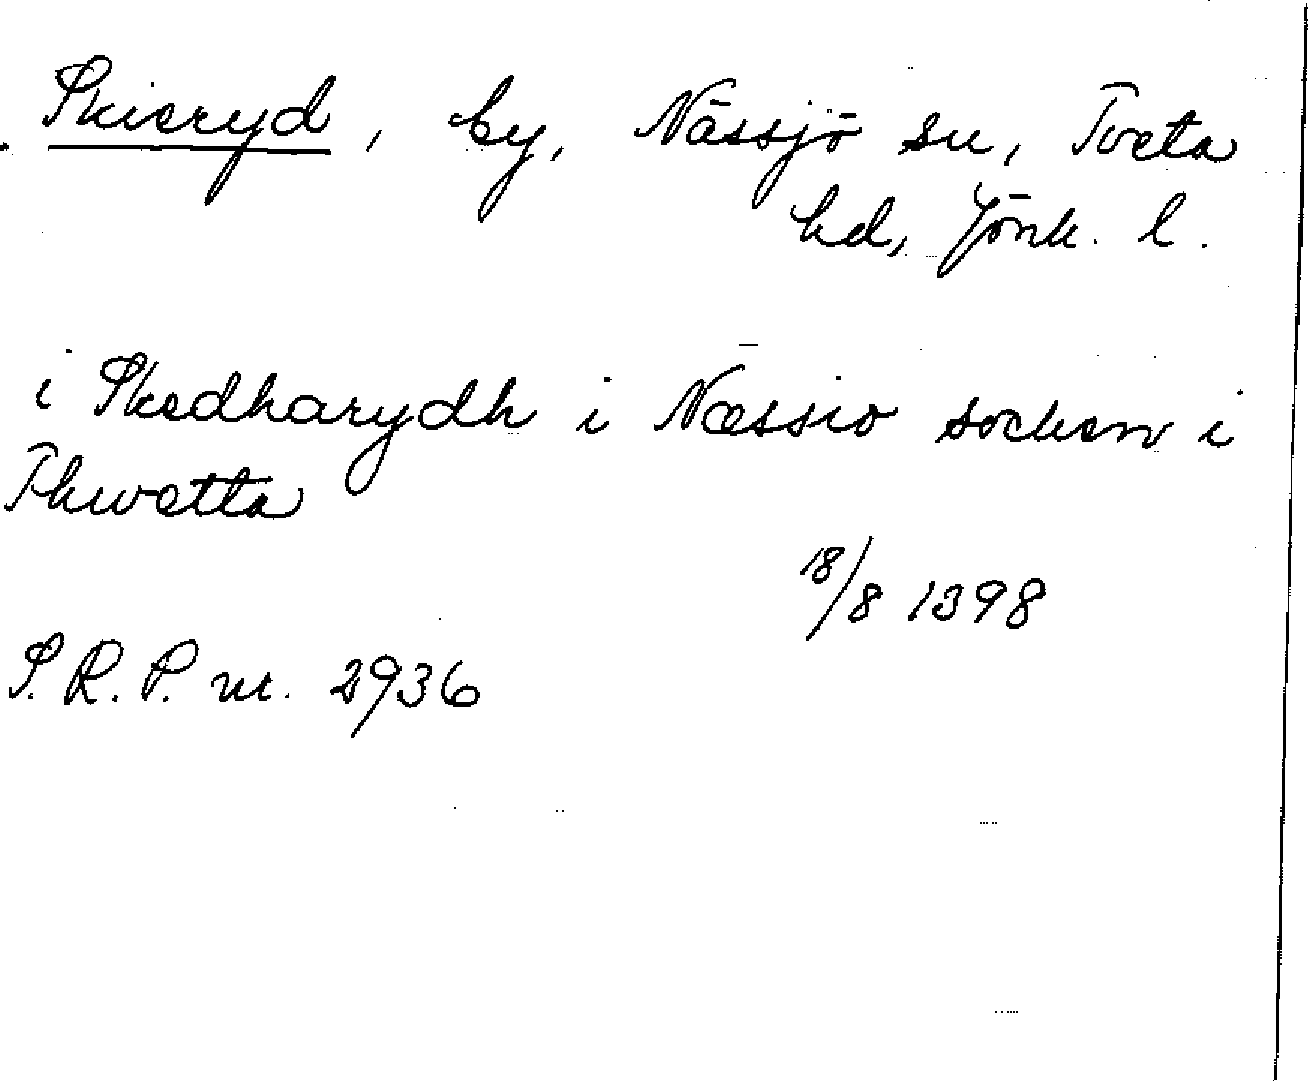 Skieryd, by, Nässjö sn, Tveta
hd, Jönk. l.
i Skedharydh i Næssio socken i
Thwetta
18/8 1398
S.R.P. nr. 2936